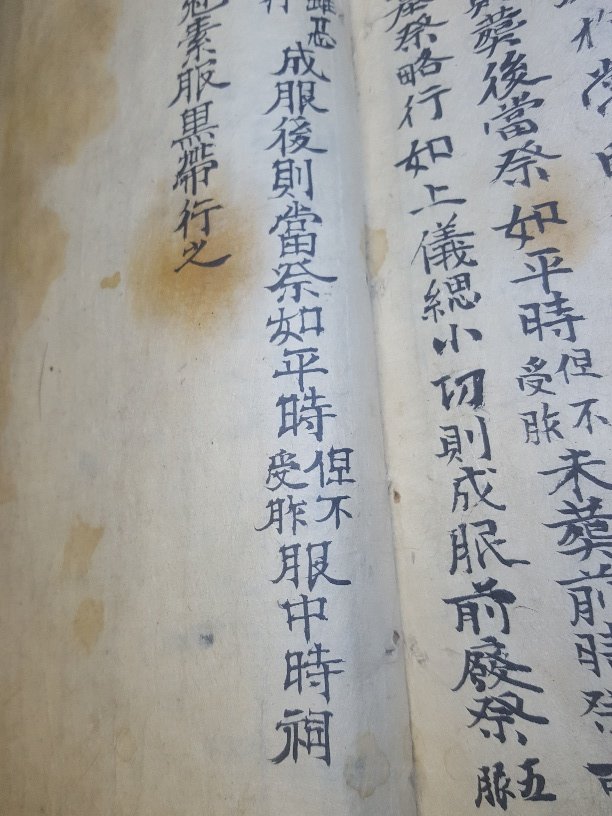 葬後當祭如平時但不受胙未葬前時祭
祭略行如上儀緦小功則成服前廢祭五服
雖忌行成服後則當祭如平時但不受胙服中時祠
素服黑帶行之